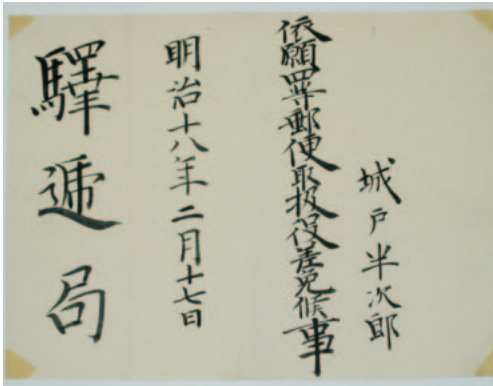 城戸半次郎
依願四等郵便取扱役差免候事
明治十八年二月十七日
驛遞局